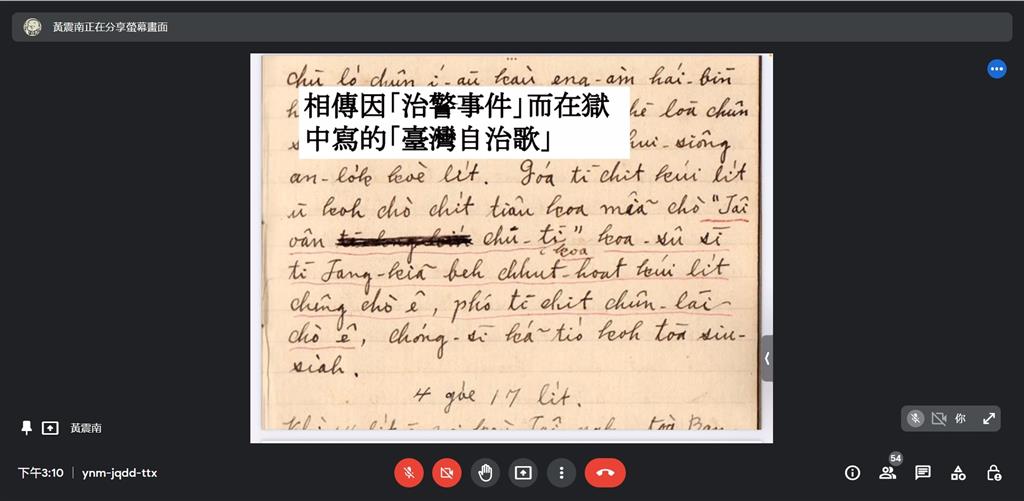 黃震南正在分享螢幕畫面
chū ló chûn í-āu kàu eng-àm hái-bīn
相傳因「治警事件」而在獄
中寫的「臺灣自治歌」
hē loā chûn
hui-siông
an-lo̍k koè li̍t. Góa tī chit kúi li̍t
ū koh chò chi̍t tiâu koa miâ chò "Tâi
oân chū-tī" koa-sû sī
koa
tī Tang-kiâ beh chhut-hoat kúi li̍t
chêng chò ê, phó͘ tī chit chûn-lāi
chò ê, chóng-sī ká-tió koh toā siu-
siah.
4 góe̍ 17 li̍t.
黃震南
你
下午3:10 | ynm-jqdd-ttx
54